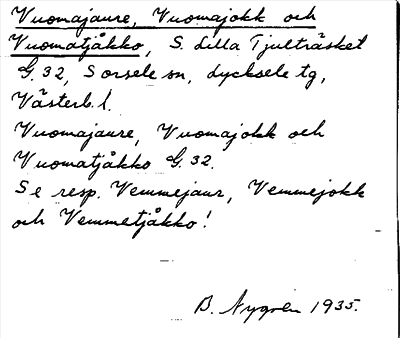 Vuomajaure, Vuomajokk och
Vuomatjåkko, S. Lilla Tjulträsket
G. 32, Sorsele sn, Lycksele tg,
Västerb. l.
Vuomajaure, Vuomajokk och
Vuomatjåkko G. 32.
Se resp. Vemmejaur, Vemmejokk
och Vemmetjåkko!
B. Nygren 1935.